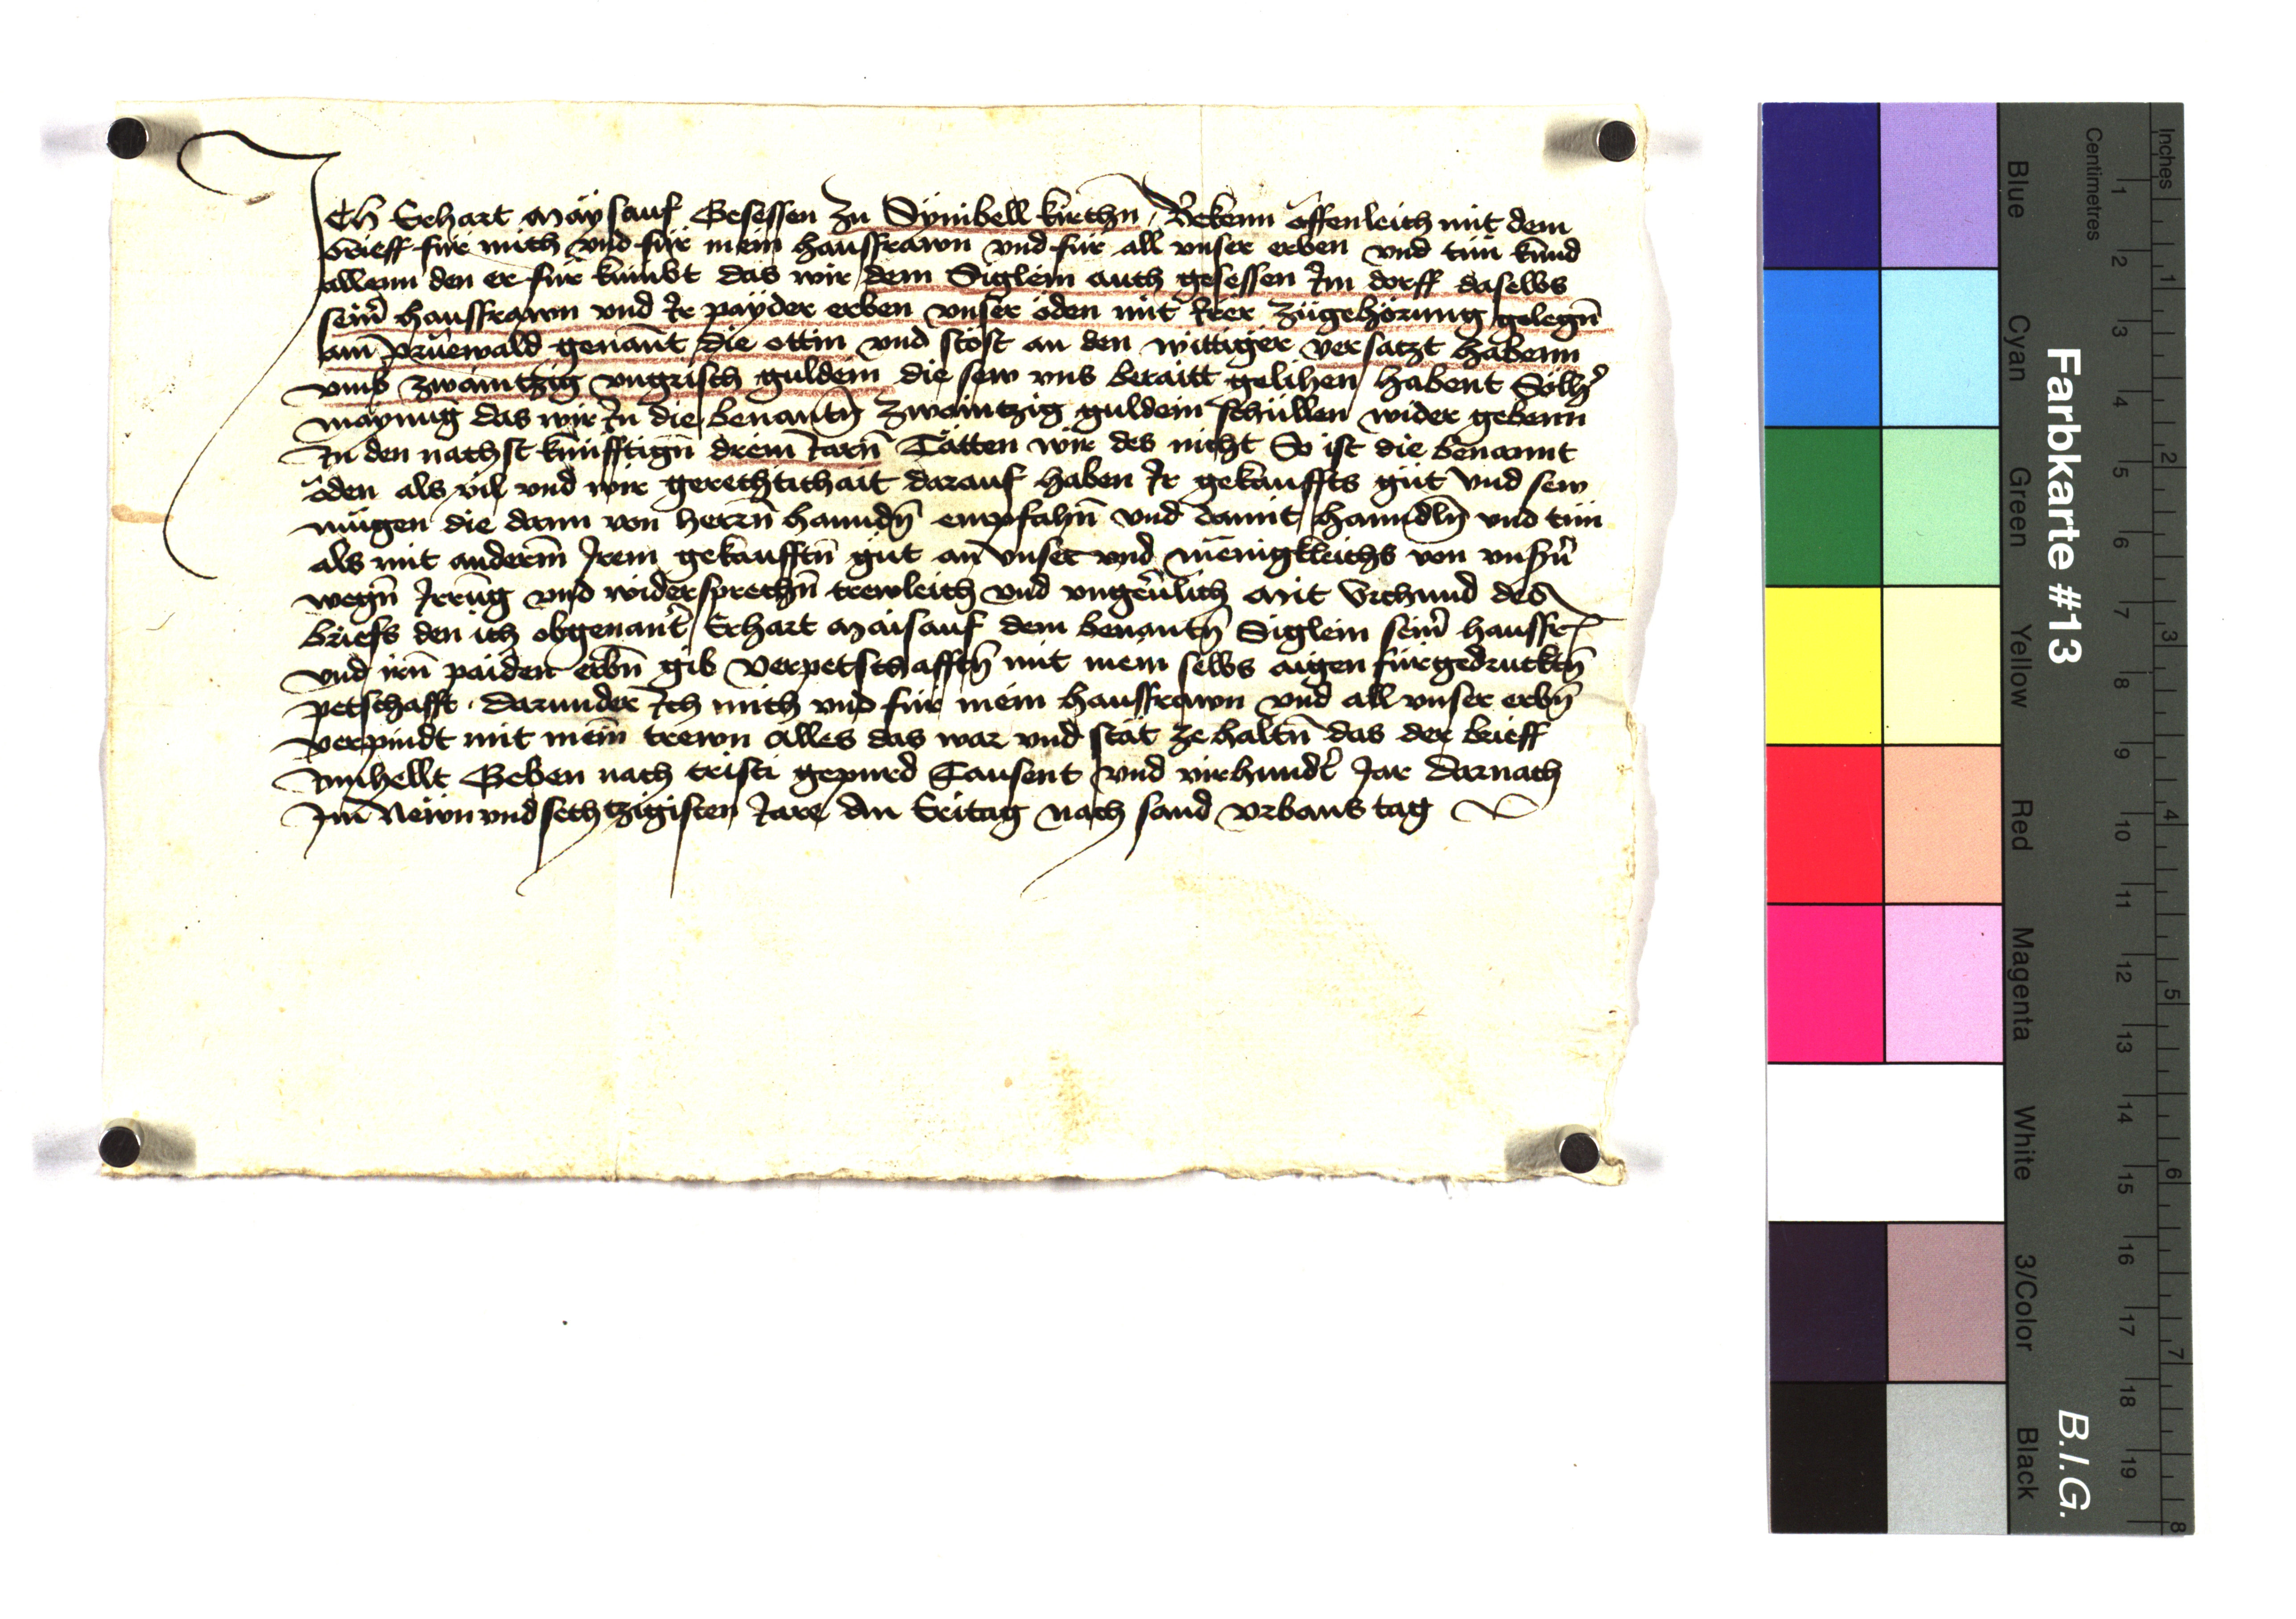 Ich Erhart Maysauf Gesessen zu Symbellkirchn Bekenn offenleich mit dem
brieff fur mich vnd fur mein haussfrawn vnd fur all vnser erben vnd tun kund
allenn den er fur kumbt das wir dem Siglein auch gesessen Im dorff daselbs
sein̄ haussfrawn vnd Ir payder erben vnser öden mit Irer zugehörung gelegn̄
am̄ prüewald genant die ottin vnd stöst an den wittiger versatzt habenn
vmb zwaintzig vngrisch guldein die sew vns beraitt gelihen habent Sölh̄
maynug das wir In die benantn̄ zwaintzig guldein schüllen wider gebenn
In den nachst künfftign̄ drein Iarn̄ Tätten wir des nicht So ist die benannt
öden als vil vnd wir gerechtichait darauf haben Ir gekauffts gut vnd sew
mügen die dann von herrn̄ hanndn̄ empfahn̄ vnd damit hanndln̄ vnd tun
als mit anderm̄ Irem gekaufftn̄ gut an vnser vnd mēnigkleichs von vnsn̄
wegn̄ Irrūg vnd widersprechn̄ trewleich vnd vngeūlich Mit Vrchund des
briefs den ich obgenant̄ Erhart Maisauf dem benantn̄ Siglein sein̄ haussfr
vnd irn̄ paiden erbn̄ gib verpetschafftn̄ mit mein selbs aigen fürgedrucktn̄
petschafft darunder Ich mich vnd fur mein haussfrawn vnd all vnser erbn̄
verpindt mit mein̄ trewn alles das war vnd stät ze haltn̄ das der brieff
Innhellt Geben nach cristi gepurd Tausent vnd virhundt̄ Jar darnach
Im̄ Newnvndsechtzigisten Iare An Eritag nach sand vrbans tag
Farbkarte #13
B.I.G.
Inches
Centimetres
Blue
Cyan
Green
Yellow
Red
Magenta
White
3/Color
Black
1 2 3 4 5 6 7 8 9 10 11 12 13 14 15 16 17 18 19
1 2 3 4 5 6 7 8